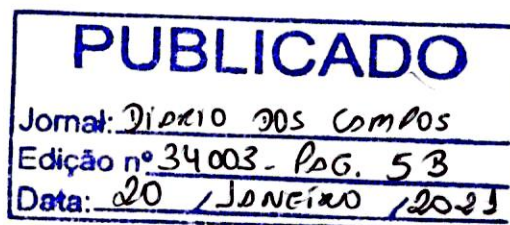 PUBLICADO
Jornal: DiARIO DOS CAMPOS
Edição nº 34003 - PAG. 5B
Data: 20 / JANEiRO / 2021